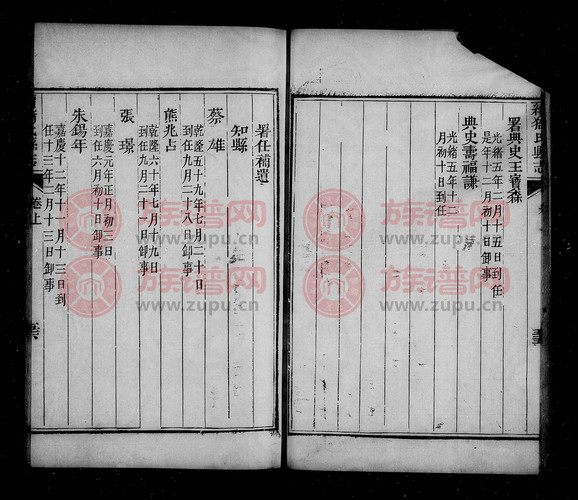 署典史王寶森
光緒五年二月十五日到任
是年十二月初十日卸事
典史壽福謙
光緒五年十二
月初十日到任
署任補遺
知縣
蔡雄
乾隆五十九年七月二十日
到任九月二十八日卸事
熊兆占
乾隆六十年七月十九日
到任九月二十一日卸事
張璟
嘉慶元年正月初三日
到任六月初十日卸事
朱錫年
嘉慶十二年十一月十三日到
任十三年二月十三日卸事
卷上
族谱网
www.zupu.cn
族谱网
www.zupu.cn
族谱网
www.zupu.cn
族谱网
www.zupu.cn